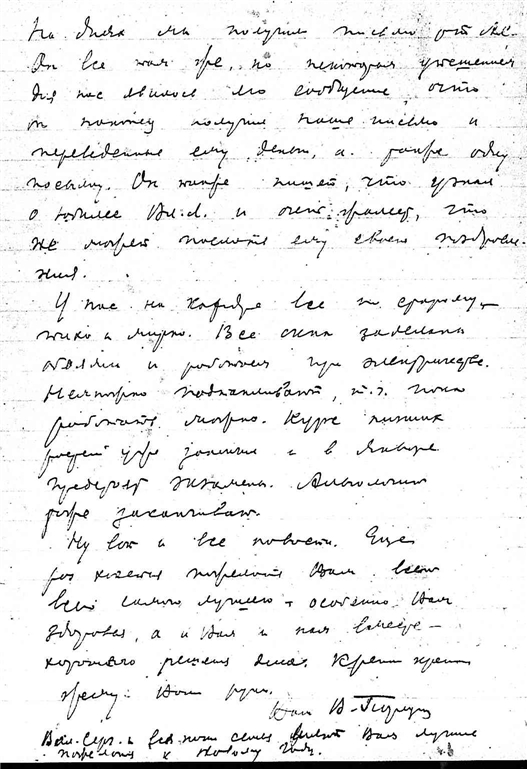 На днях мы получили письмо от
Он все там же, но некоторым утешением
для нас явилось его сообщение, что
он наконец получил наше письмо и
переведенные ему деньги, а также одну
посылку. Он также пишет, что узнал
о юбилее Вл. и очень жалеет, что
не может послать ему своего поздравле-
ния.
У нас на кафедре все по старому,
тихо и мирно. Все окна заделаны
и работаем при электричестве.
Немножко подтапливают, т.ч. пока
работать можно. Курс
уже и в Январе
экзамены.
тоже заканчивают.
Ну вот и все новости. Еще
раз хочется пожелать Вам всего
всего самого лучшего и особенно Вам
здоровья, а и Вам и нам вместе —
хорошего решения дела. Крепко крепко
жму Ваши руки.
Ваш В.
и вся моя семья Вам лучшие
пожелания к Новому Году.